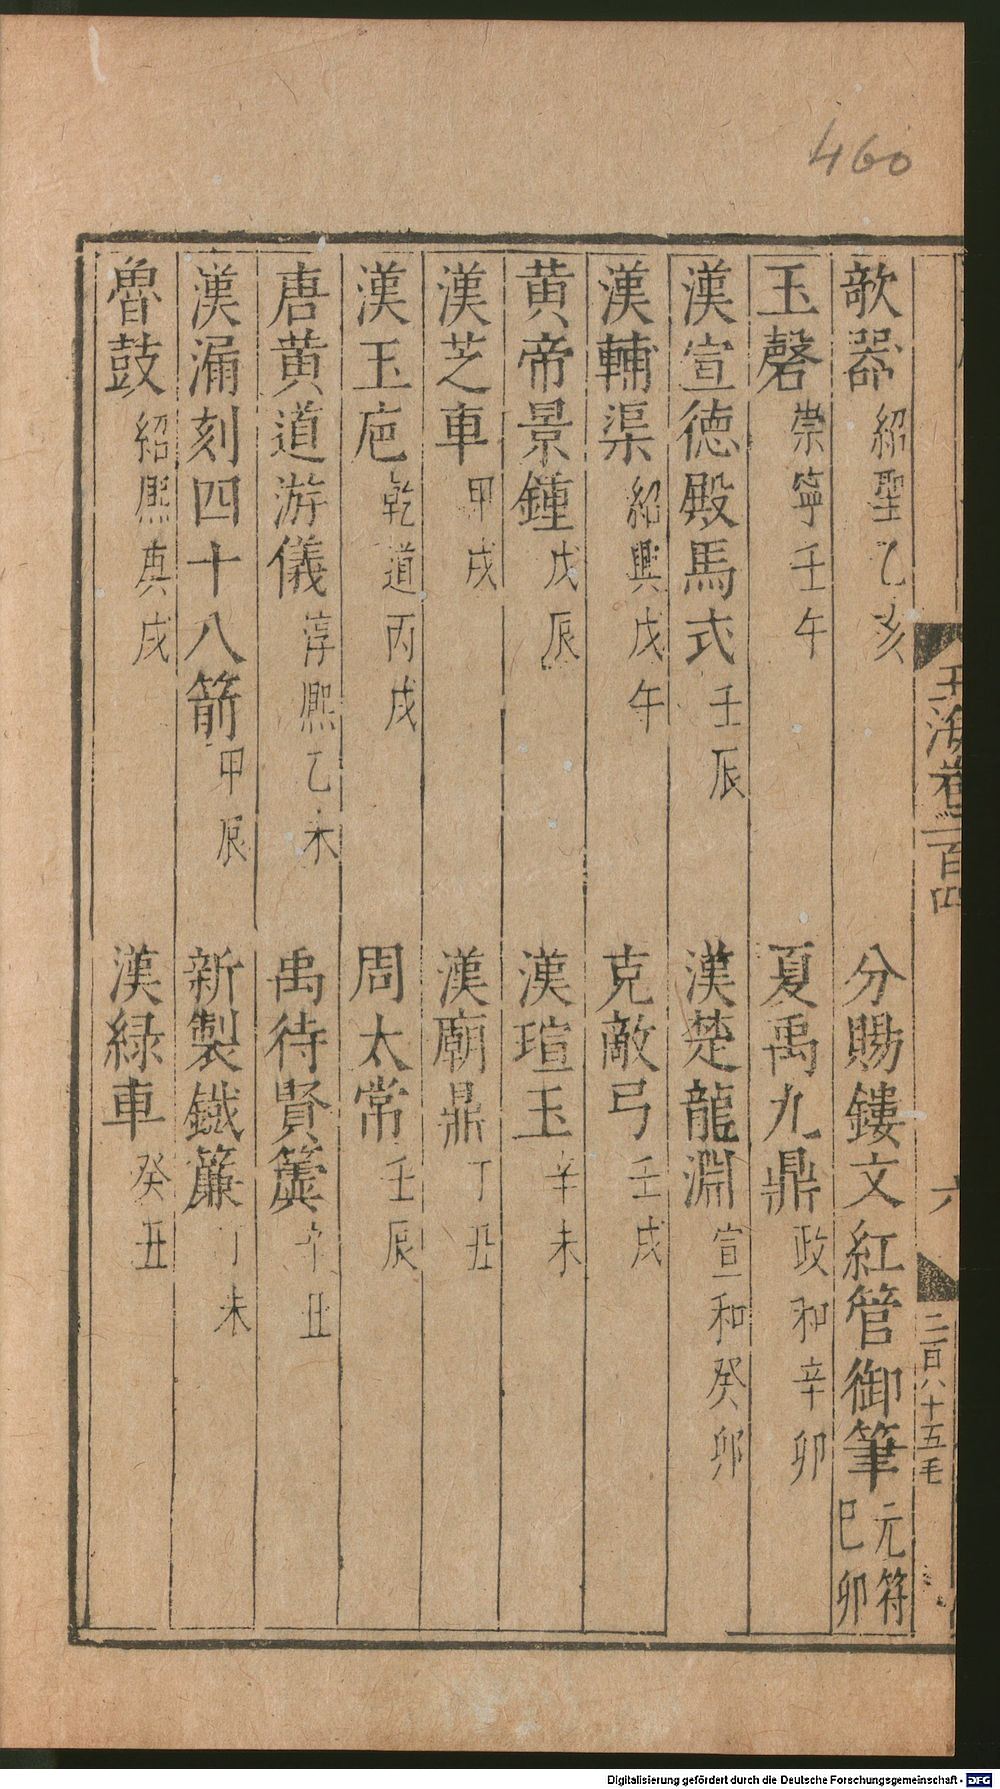 460
玉海卷二百四
六
二百八十五毛
欹器 紹聖乙亥 分賜鏤文紅管御筆 元符己卯
玉磬 崇寧壬午 夏禹九鼎 政和辛卯
漢宣德殿馬式 壬辰 漢楚龍淵 宣和癸卯
漢輔渠 紹興戊午 克敵弓 壬戌
黃帝景鍾 戊辰 漢瑄玉 辛未
漢芝車 甲戌 漢廟鼎 丁丑
漢玉卮 乾道丙戌 周太常 壬辰
唐黃道游儀 淳熙乙未 禹待賢簴 辛丑
漢漏刻四十八箭 甲辰 新製鐵簾 丁未
魯鼓 紹熙庚戌 漢綠車 癸丑
Digitalisierung gefördert durch die Deutsche Forschungsgemeinschaft - DFG